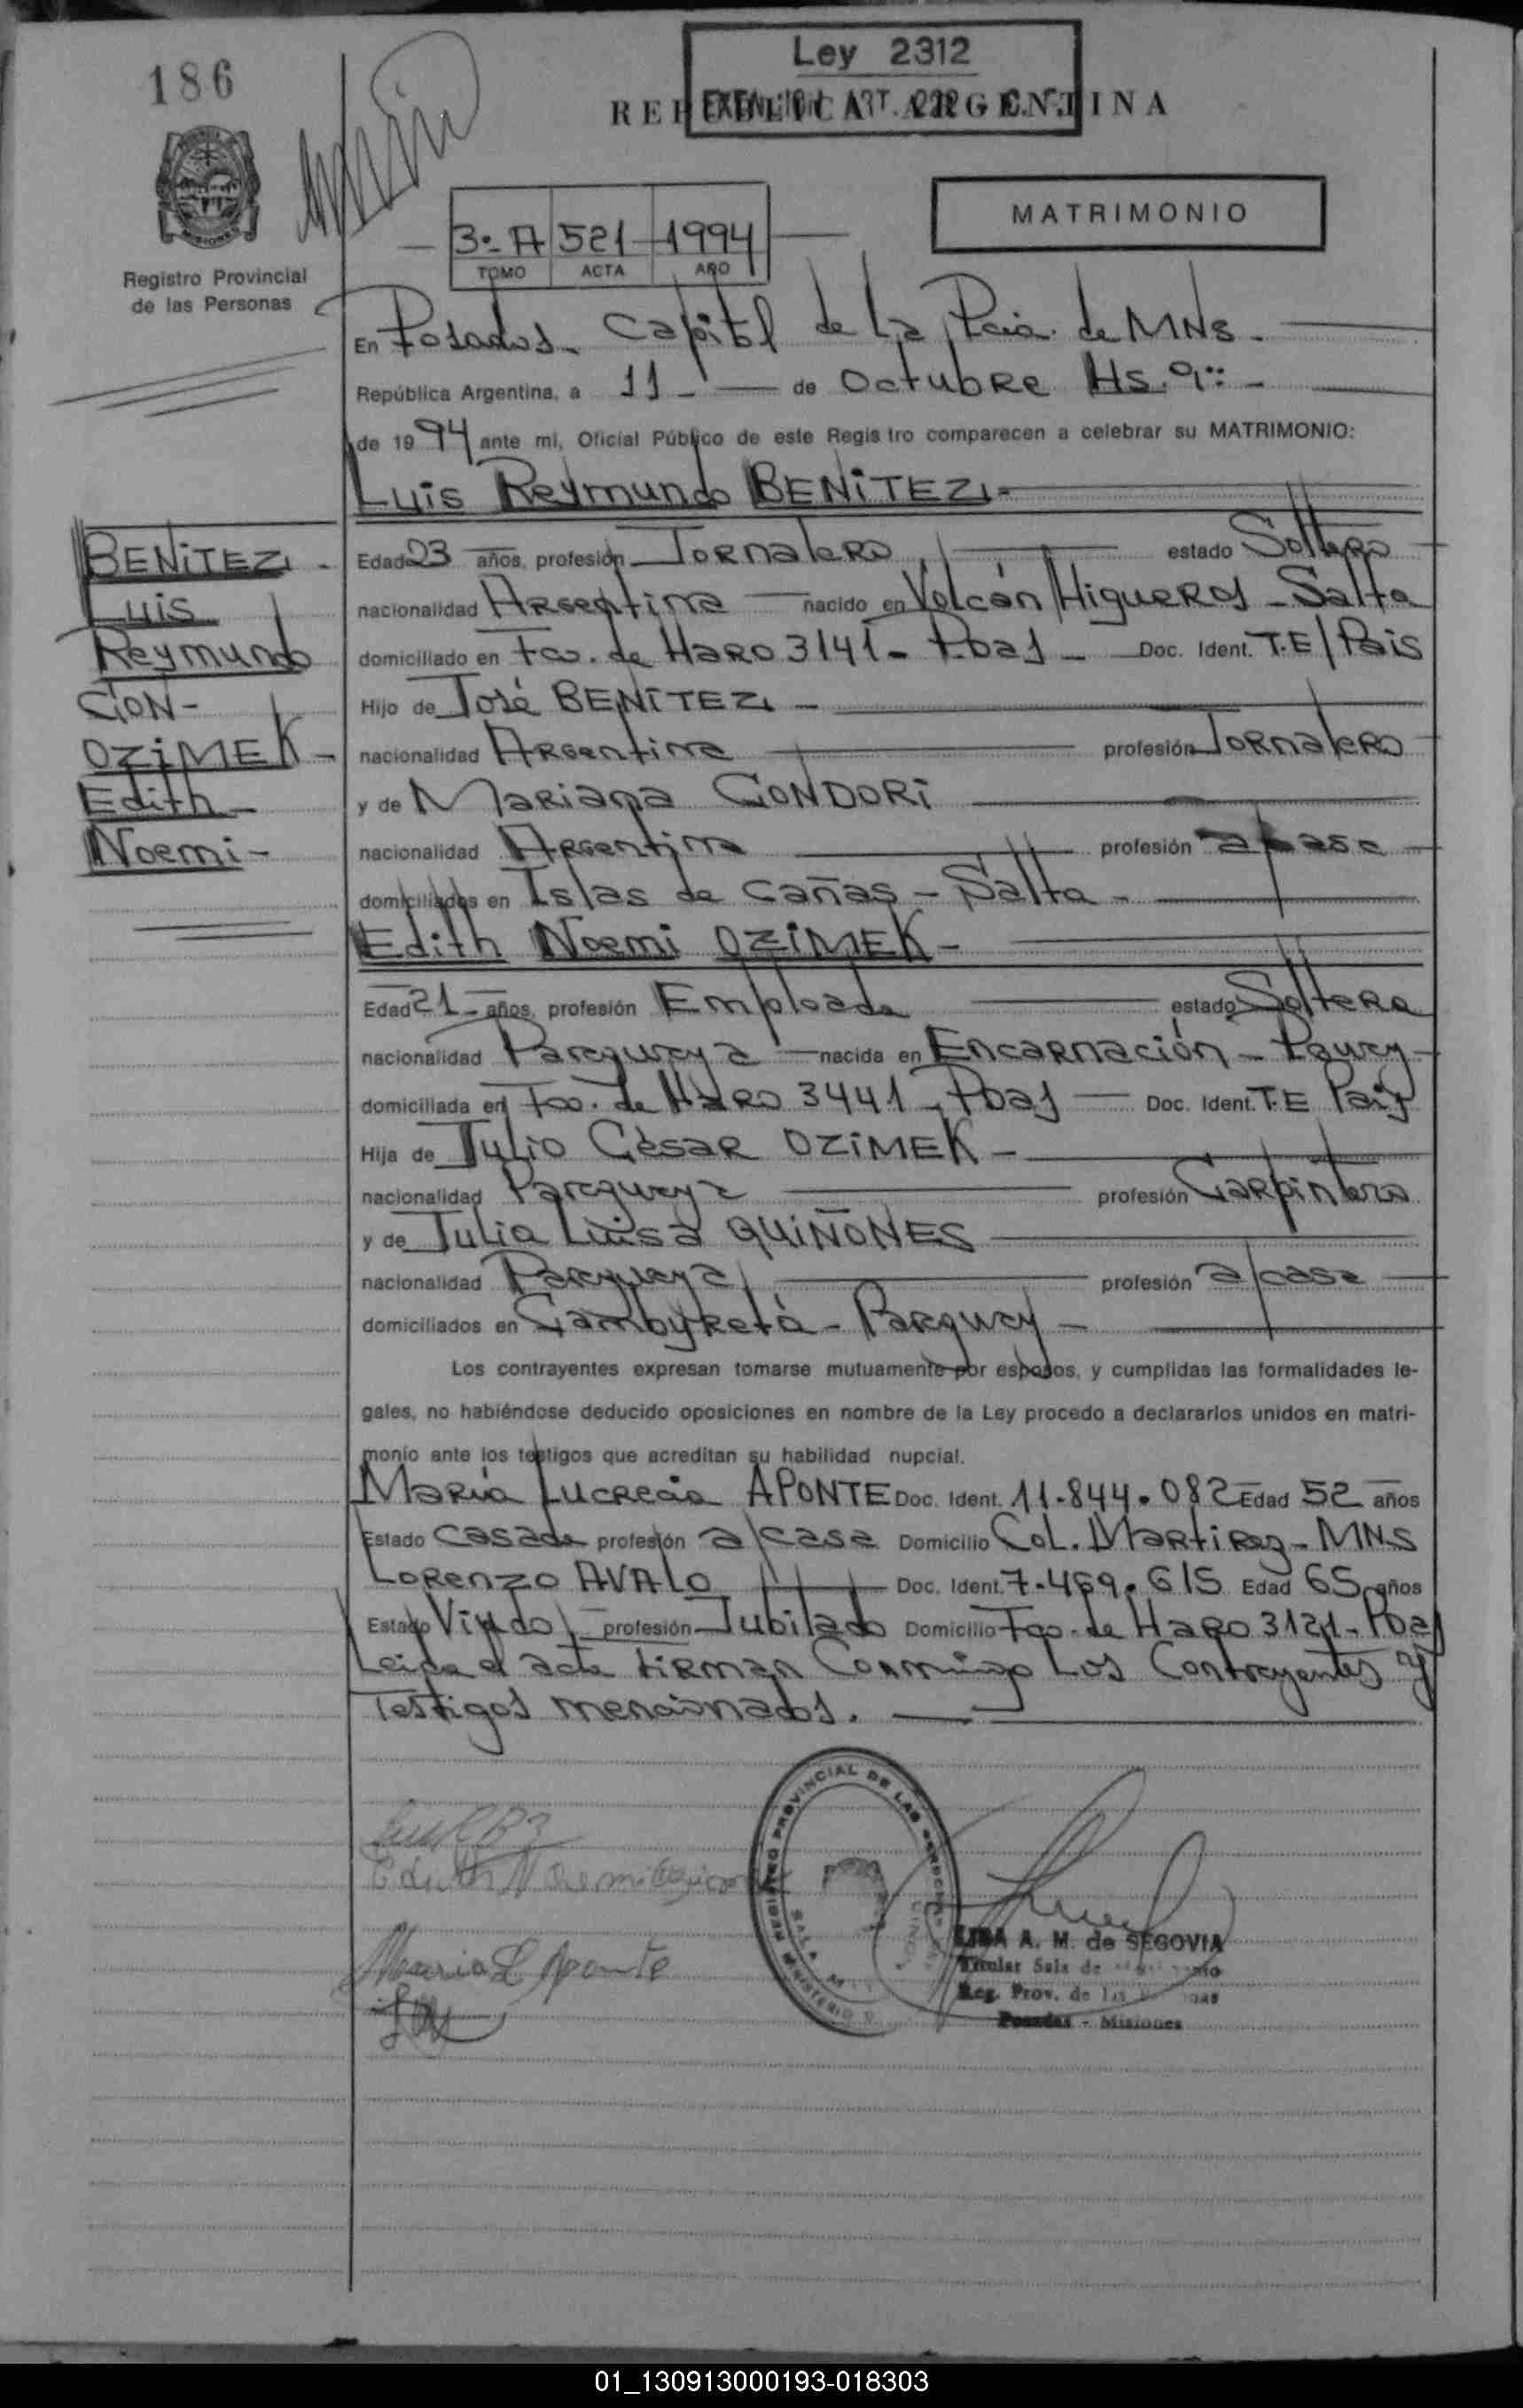 186
Ley 2312
REPUBLICA ARGENTINA
EXTENSION ART. C.N.
MATRIMONIO
3º A 521 1994
TOMO ACTA AÑO
Registro Provincial
de las Personas
En Posadas - Capital de La Pcia. de MNS -
República Argentina, a 11 - de Octubre Hs. 9:: -
de 1994 ante mi, Oficial Público de este Regis tro comparecen a celebrar su MATRIMONIO:
Luis Reymundo BENITEZ -
BENITEZ -
Luis
Reymundo
CON -
OZIMEK -
Edith -
Noemi -
Edad 23 años, profesión Jornalero estado Soltero
nacionalidad Argentina nacido en Volcán Higueros - Salta
domiciliado en Fco. de HARO 3141 - Pdas - Doc. Ident. T.E/Pais
Hijo de José BENITEZ -
nacionalidad Argentina profesión Jornalero
y de Mariana CONDORI
nacionalidad Argentina profesión a/casa
domiciliados en Islas de Cañas - Salta -
Edith Noemi OZIMEK -
Edad 21 - años, profesión Empleada estado Soltera
nacionalidad Paraguaya nacida en Encarnación - Pguay
domiciliada en Fco. de HARO 3441 - Pdas Doc. Ident. T.E Pais
Hija de Julio César OZIMEK -
nacionalidad Paraguaya profesión Carpintero
y de Julia Luisa QUIÑONES
nacionalidad Paraguaya profesión a/casa
domiciliados en Cambyretá - Paraguay -
Los contrayentes expresan tomarse mutuamente por esposos, y cumplidas las formalidades le-
gales, no habiéndose deducido oposiciones en nombre de la Ley procedo a declararlos unidos en matri-
monio ante los testigos que acreditan su habilidad nupcial.
María Lucrecia APONTE Doc. Ident. 11.844.082 Edad 52 años
Estado Casada profesión a/casa Domicilio Col. Martires - MNS
Lorenzo AVALO Doc. Ident. 7.469.615 Edad 65 años
Estado Viudo profesión Jubilado Domicilio Fco. de HARO 3121 - Pdas
Leida el acta firman Conmigo Los Contrayentes y
Testigos mencionados.
Edith Noemi Ozimek
Maria L Aponte
REGISTRO PROVINCIAL DE LAS PERSONAS
MINISTERIO
A. M. de SEGOVIA
Titular Sala de
Reg. Prov. de las
Posadas - Misiones
01_130913000193-018303